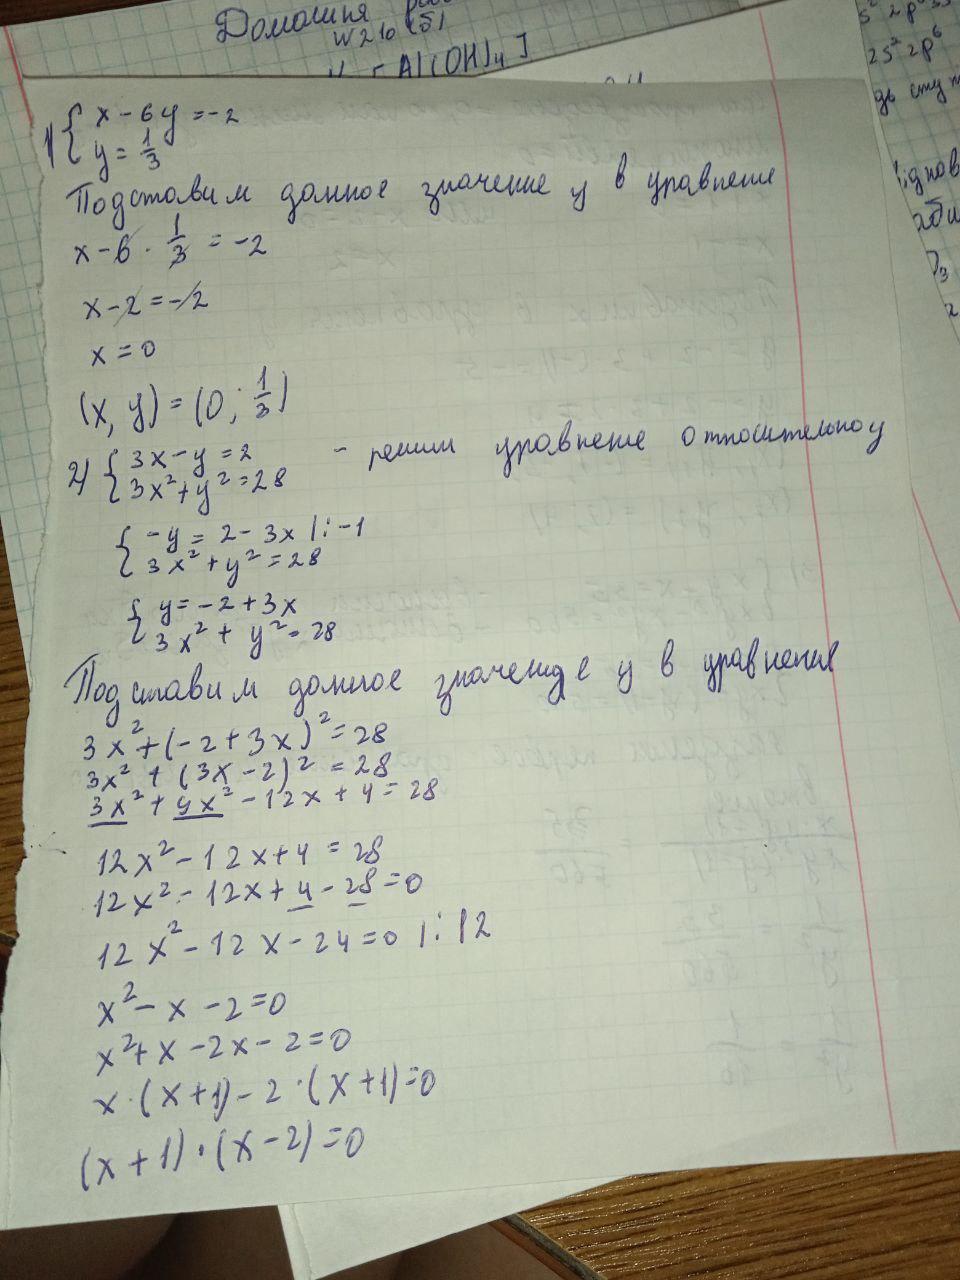 Домашня
№210(б)
Al(OH)4]
2s² 2p⁶
1) { x - 6y = -2
y = 1/3
Подставим данное значение y в уравнение
x - 6 · 1/3 = -2
x - 2 = -2
x = 0
(x, y) = (0; 1/3)
2) { 3x - y = 2 - решим уравнение относительно y
3x² + y² = 28
{ -y = 2 - 3x |: -1
3x² + y² = 28
{ y = -2 + 3x
3x² + y² = 28
Подставим данное значение y в уравнения
3x² + (-2 + 3x)² = 28
3x² + (3x - 2)² = 28
3x² + 9x² - 12x + 4 = 28
12x² - 12x + 4 = 28
12x² - 12x + 4 - 28 = 0
12x² - 12x - 24 = 0 |: 12
x² - x - 2 = 0
x² + x - 2x - 2 = 0
x · (x + 1) - 2 · (x + 1) = 0
(x + 1) · (x - 2) = 0